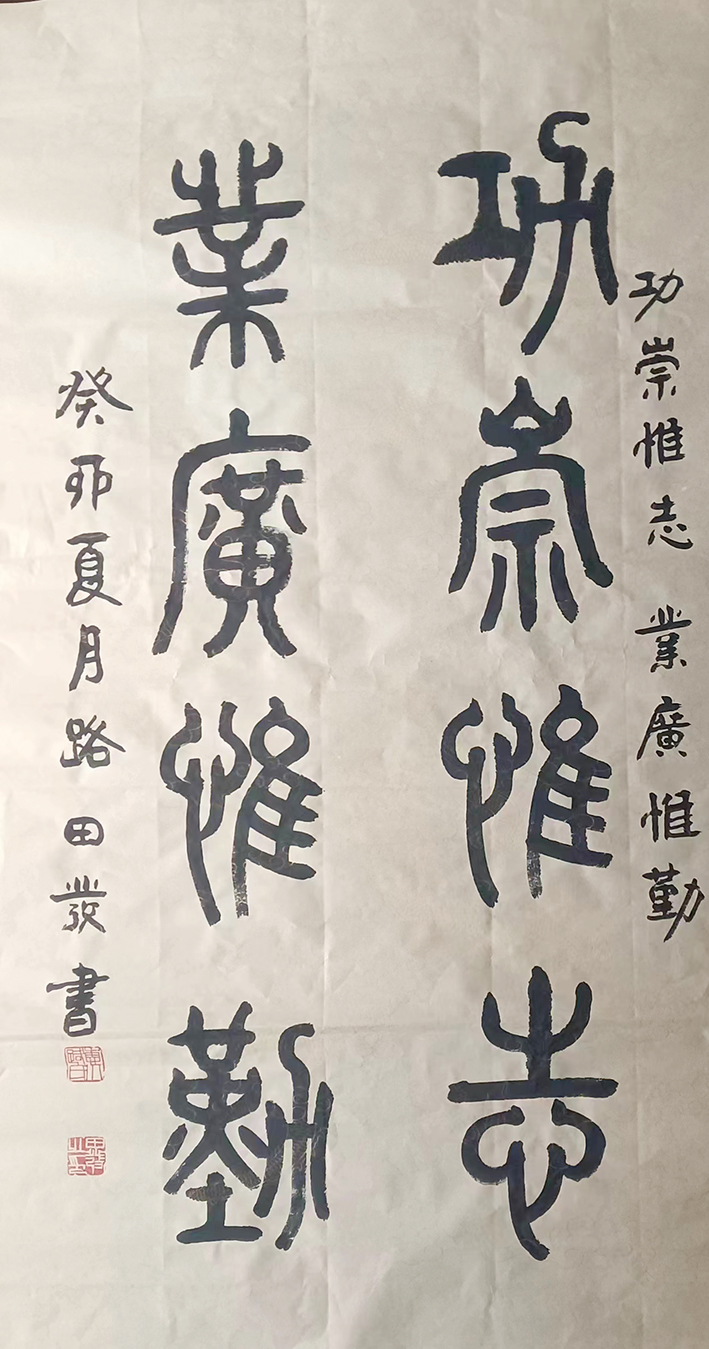 功崇惟志 業廣惟勤
功崇惟志
業廣惟勤
癸卯夏月路田發書